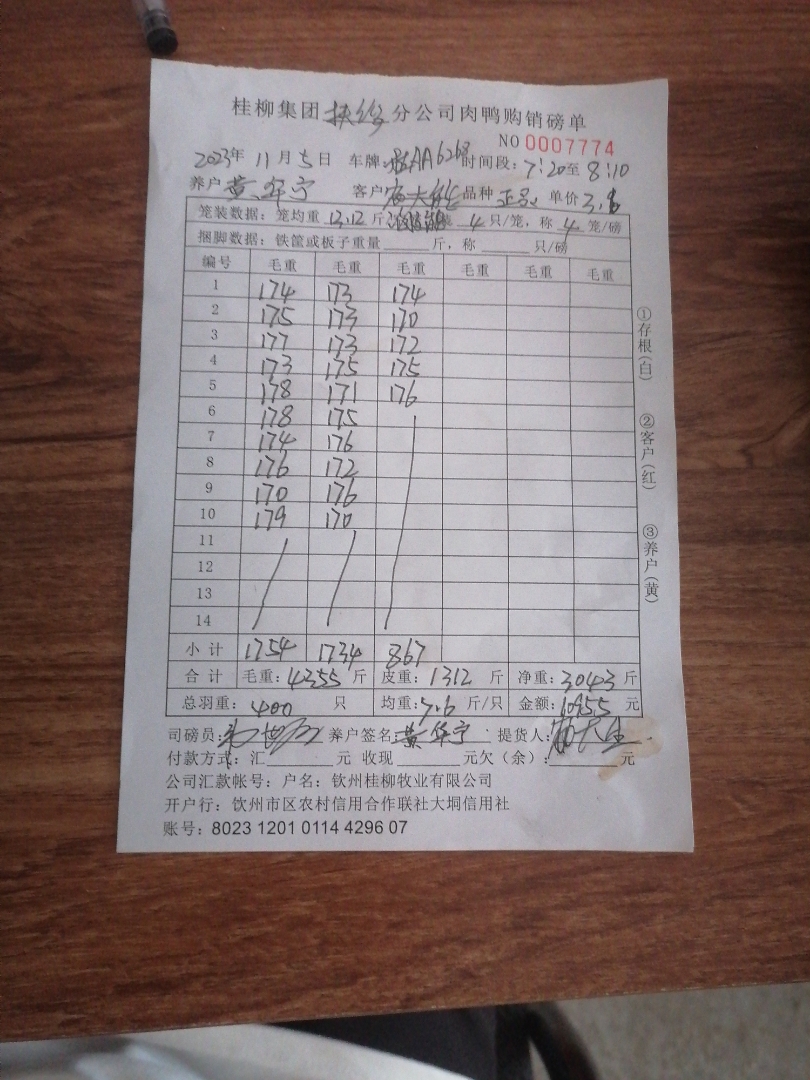 桂柳集团扶绥分公司肉鸭购销磅单
NO 0007774
2023年 11月5日 车牌:桂AA6268 时间段:7:20至8:10
养户 黄华宁 客户 品种 单价3.6
笼装数据:笼均重 13.12斤 4只/笼,称 4 笼/磅
捆脚数据:铁筐或板子重量 斤,称 只/磅
编号 毛重 毛重 毛重 毛重 毛重 毛重
1 174 173 174
2 175 173 170
3 177 173 172
4 173 175 175
5 178 171 176
6 178 175
7 174 176
8 176 172
9 170 176
10 179 170
11
12
13
14
小计 1754 1734 867
合计 毛重:4355斤 皮重:1312斤 净重:3043斤
总羽重:400 只 均重:7.6斤/只 金额:10955元
司磅员: 养户签名:黄华宁 提货人:
付款方式:汇 元 收现 元欠(余): 元
公司汇款帐号:户名:钦州桂柳牧业有限公司
开户行:钦州市区农村信用合作联社大垌信用社
账号:8023 1201 0114 4296 07
①存根(白)
②客户(红)
③养户(黄)